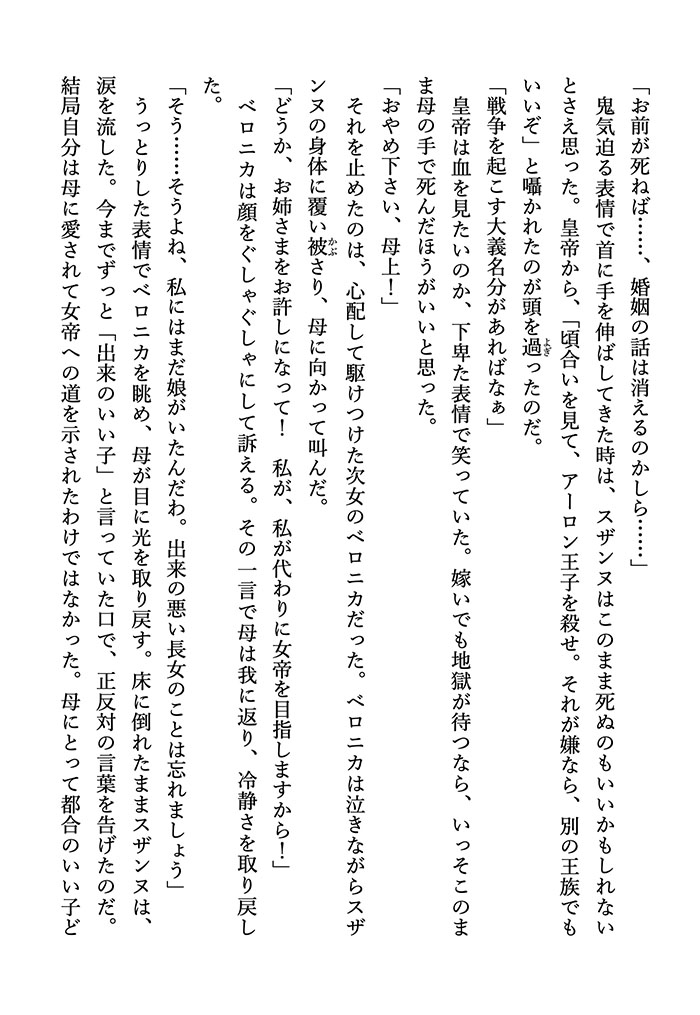 「お前が死ねば……、婚姻の話は消えるのかしら……」
　鬼気迫る表情で首に手を伸ばしてきた時は、スザンヌはこのまま死ぬのもいいかもしれない
とさえ思った。皇帝から、「頃合いを見て、アーロン王子を殺せ。それが嫌なら、別の王族でも
いいぞ」と囁かれたのが頭を過よぎったのだ。
「戦争を起こす大義名分があればなぁ」
　皇帝は血を見たいのか、下卑た表情で笑っていた。嫁いでも地獄が待つなら、いっそこのま
ま母の手で死んだほうがいいと思った。
「おやめ下さい、母上！」
　それを止めたのは、心配して駆けつけた次女のベロニカだった。ベロニカは泣きながらスザ
ンヌの身体に覆い被かぶさり、母に向かって叫んだ。
「どうか、お姉さまをお許しになって！　私が、私が代わりに女帝を目指しますから！」
　ベロニカは顔をぐしゃぐしゃにして訴える。その一言で母は我に返り、冷静さを取り戻し
た。
「そう……そうよね、私にはまだ娘がいたんだわ。出来の悪い長女のことは忘れましょう」
　うっとりした表情でベロニカを眺め、母が目に光を取り戻す。床に倒れたままスザンヌは、
涙を流した。今までずっと「出来のいい子」と言っていた口で、正反対の言葉を告げたのだ。
結局自分は母に愛されて女帝への道を示されたわけではなかった。母にとって都合のいい子ど